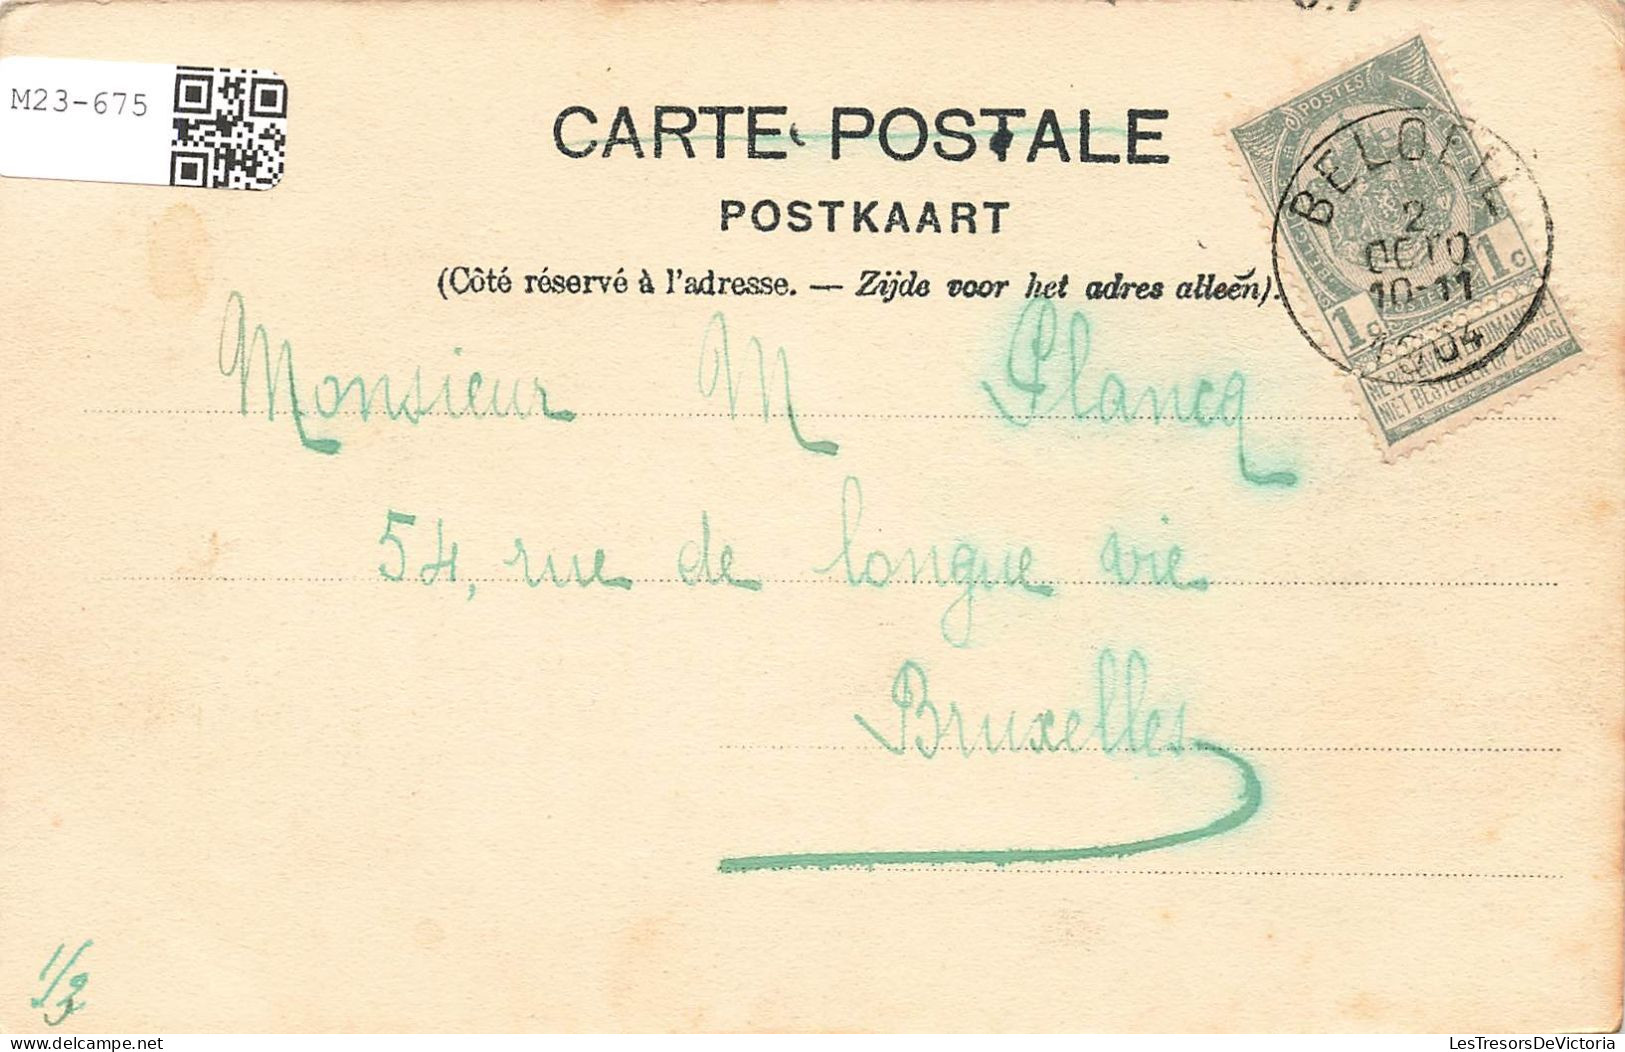 M23-675
CARTE POSTALE
POSTKAART
(Côté réservé à l'adresse. — Zijde voor het adres alleen).
POSTES
BELOEIL
2
OCTO
10-11
1904
1c 1c
NE PAS LIVRER LE DIMANCHE
NIET BESTELLEN OP ZONDAG
Monsieur M Plancq
54, rue de longue vie
Bruxelles
1/3
LesTresorsDeVictoria